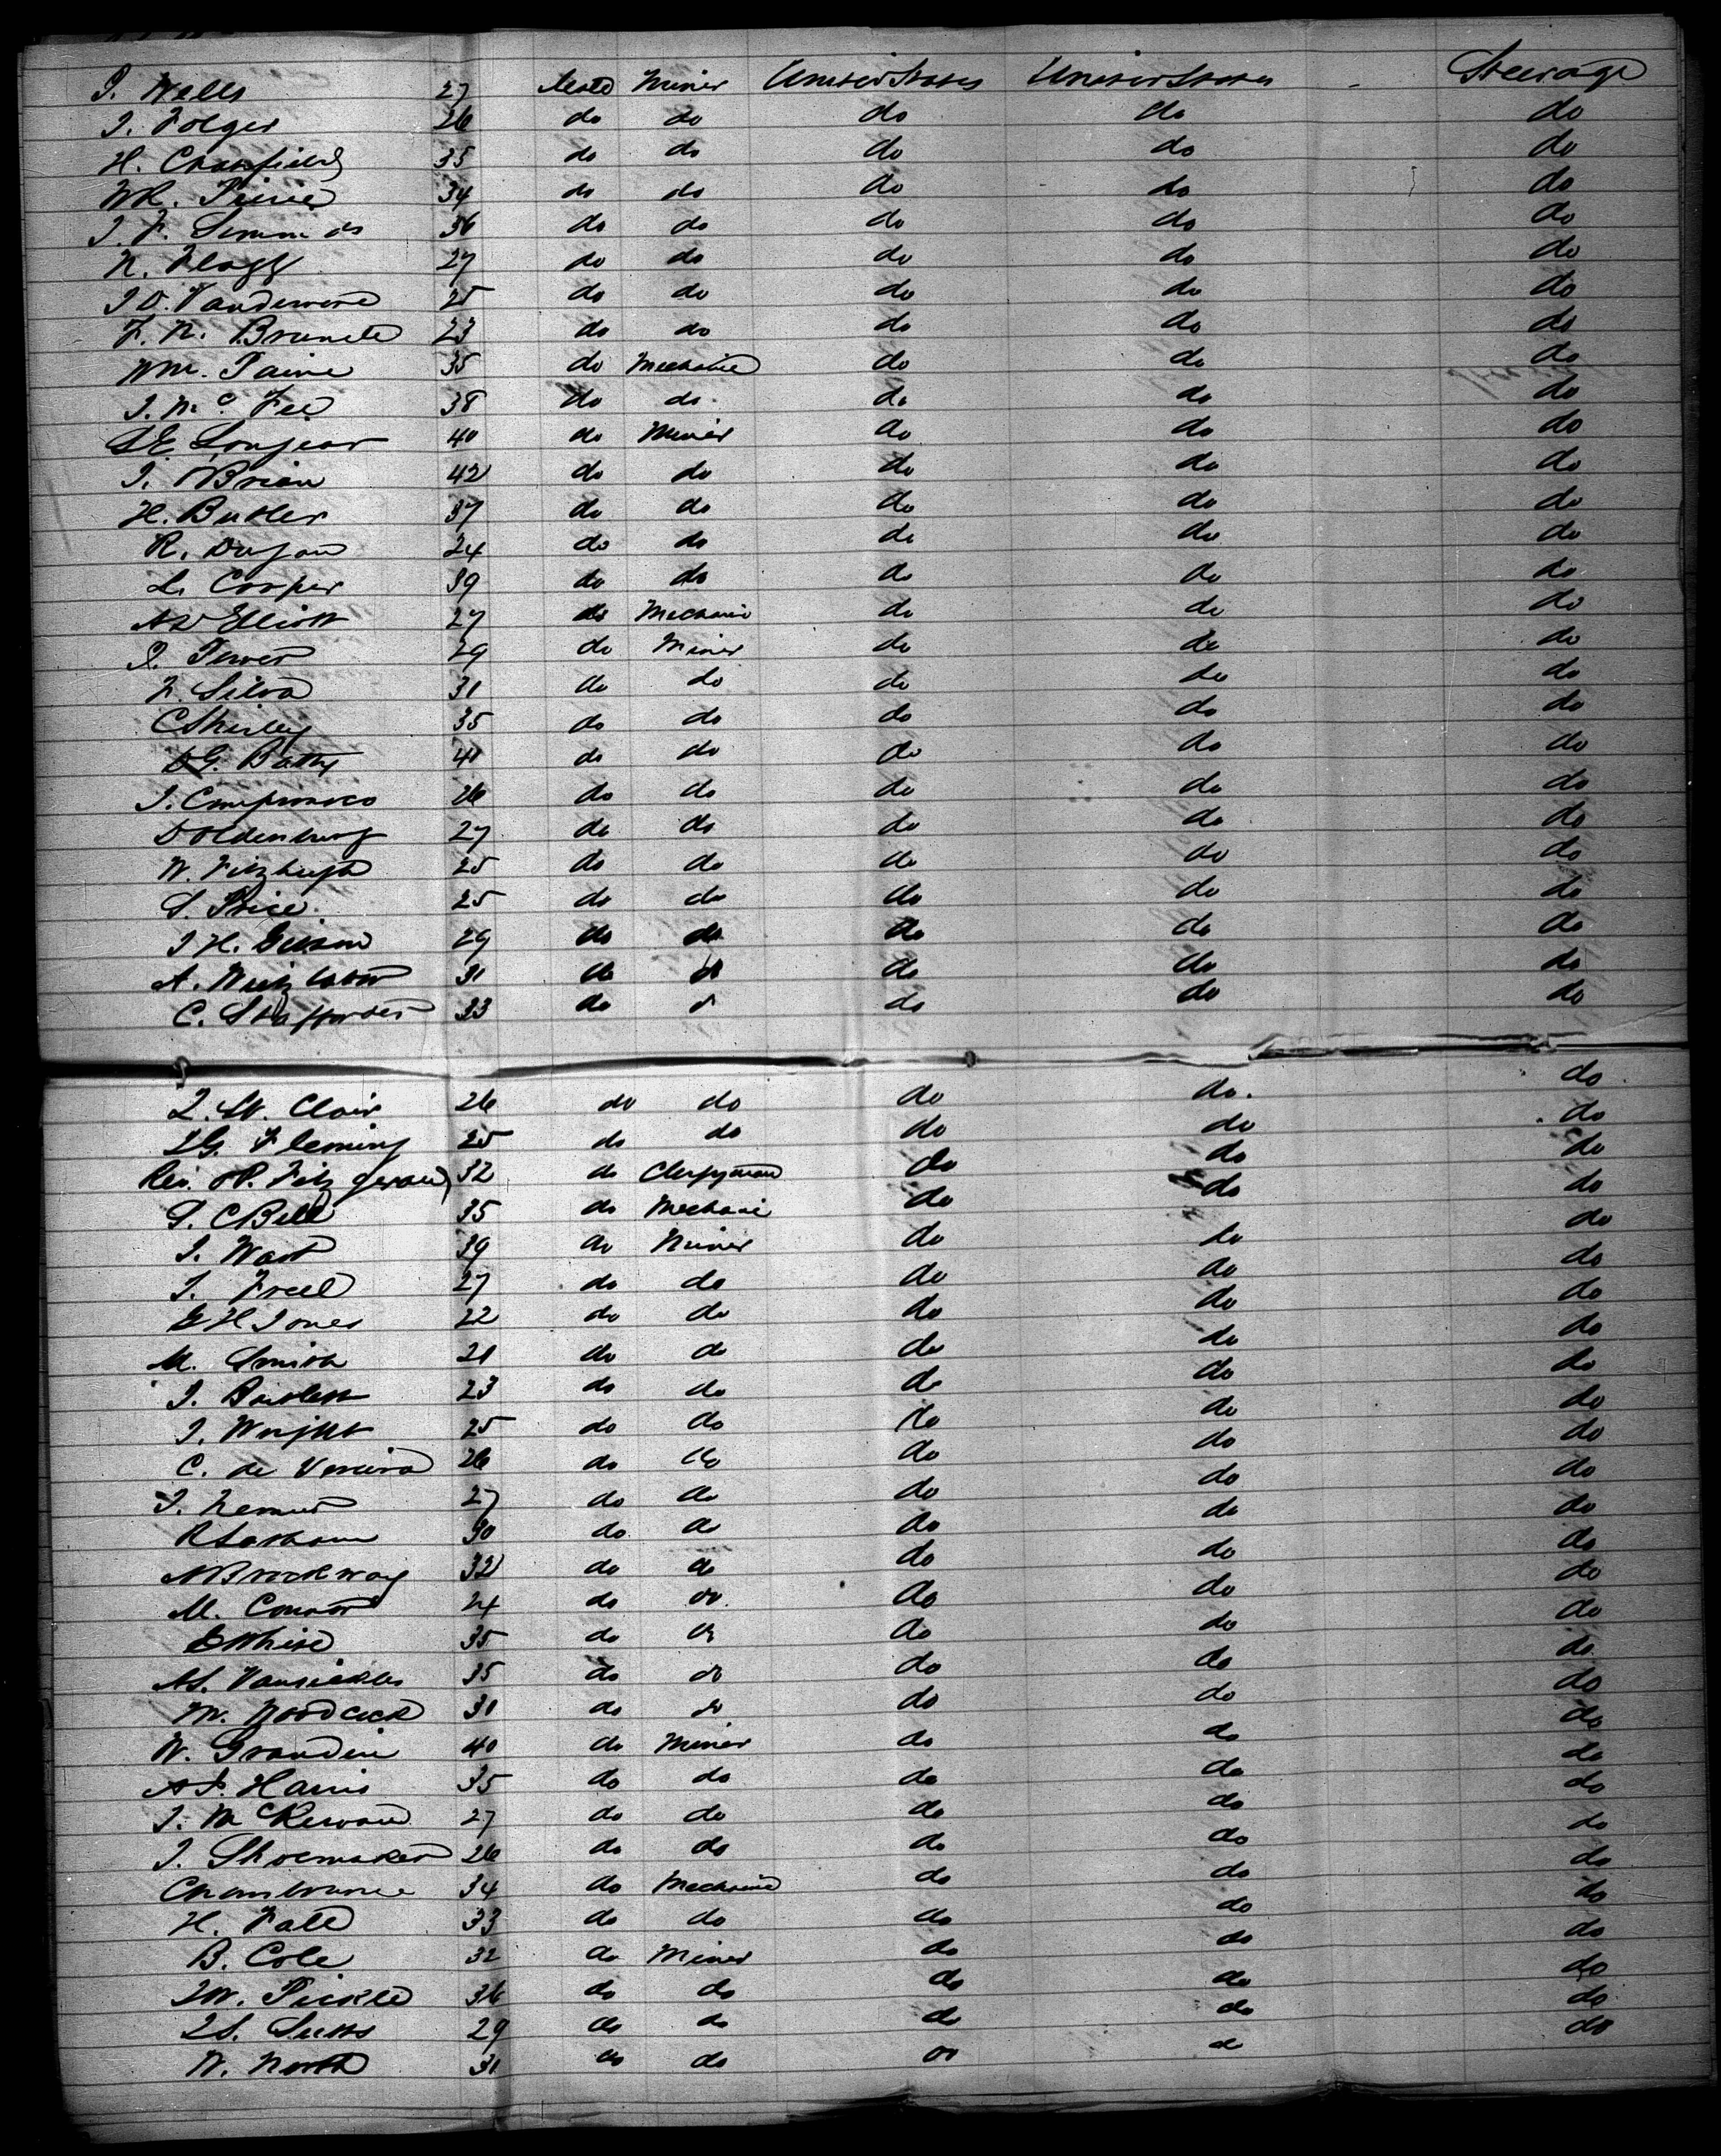 P. Wells 27 Male Miner United States United States - Steerage
J. Folger 26 do do do do do
H. Cranfield 35 do do do do do
34 do do do do do
J. F. Simmons 36 do do do do do
N. Flagg 27 do do do do do
J D. Vandervere 25 do do do do do
F. N. Brunete 23 do do do do do
Wm. Paine 35 do Mechanic do do do
J. Mc. Fee 38 do do. do do do
Longear 40 do Miner do do do
J. Brian 42 do do do do do
H. Butler 37 do do do do do
R. Dugan 24 do do do do do
L. Cooper 39 do do do do do
A W Elliott 27 do Mechanic do do do
P. 29 do Miner do do do
F. Silva 31 do do do do do
C Shirley 35 do do do do do
G. Batty 41 do do do do do
J. 26 do do do do do
D Oldenburg 27 do do do do do
W. Fitzhugh 25 do do do do do
S. Price 25 do do do do do
J H. Gibson 29 do do do do do
A. 31 do do do do do
C. 33 do do do do do
L. St. Clair 26 do do do do. do
L G. Fleming 25 do do do do do
Rev. Fitzgerald 32 do Clergyman do do do
P. C Bell 35 do Mechanic do do do
J. Wast 39 do Miner do do do
J. Freel 27 do do do do do
E H Jones 22 do do do do do
M. Smith 21 do do do do do
J. Bartlett 23 do do do do do
J. Wright 25 do do do do do
C. de 26 do do do do do
J. 27 do do do do do
R Latham 30 do do do do do
N Brockway 32 do do do do do
M. Connor 24 do do do do do
E White 35 do do do do do
Vansickles 35 do do do do do
M. Woodcock 31 do do do do do
W. Grandin 40 do Miner do do do
A. Harris 35 do do do do do
J. 27 do do do do do
J. Shoemaker 26 do do do do do
34 do Mechanic do do do
H. 33 do do do do do
B. Cole 32 do Miner do do do
J W. Pickle 36 do do do do do
29 do do do do do
W. North 31 do do do do do